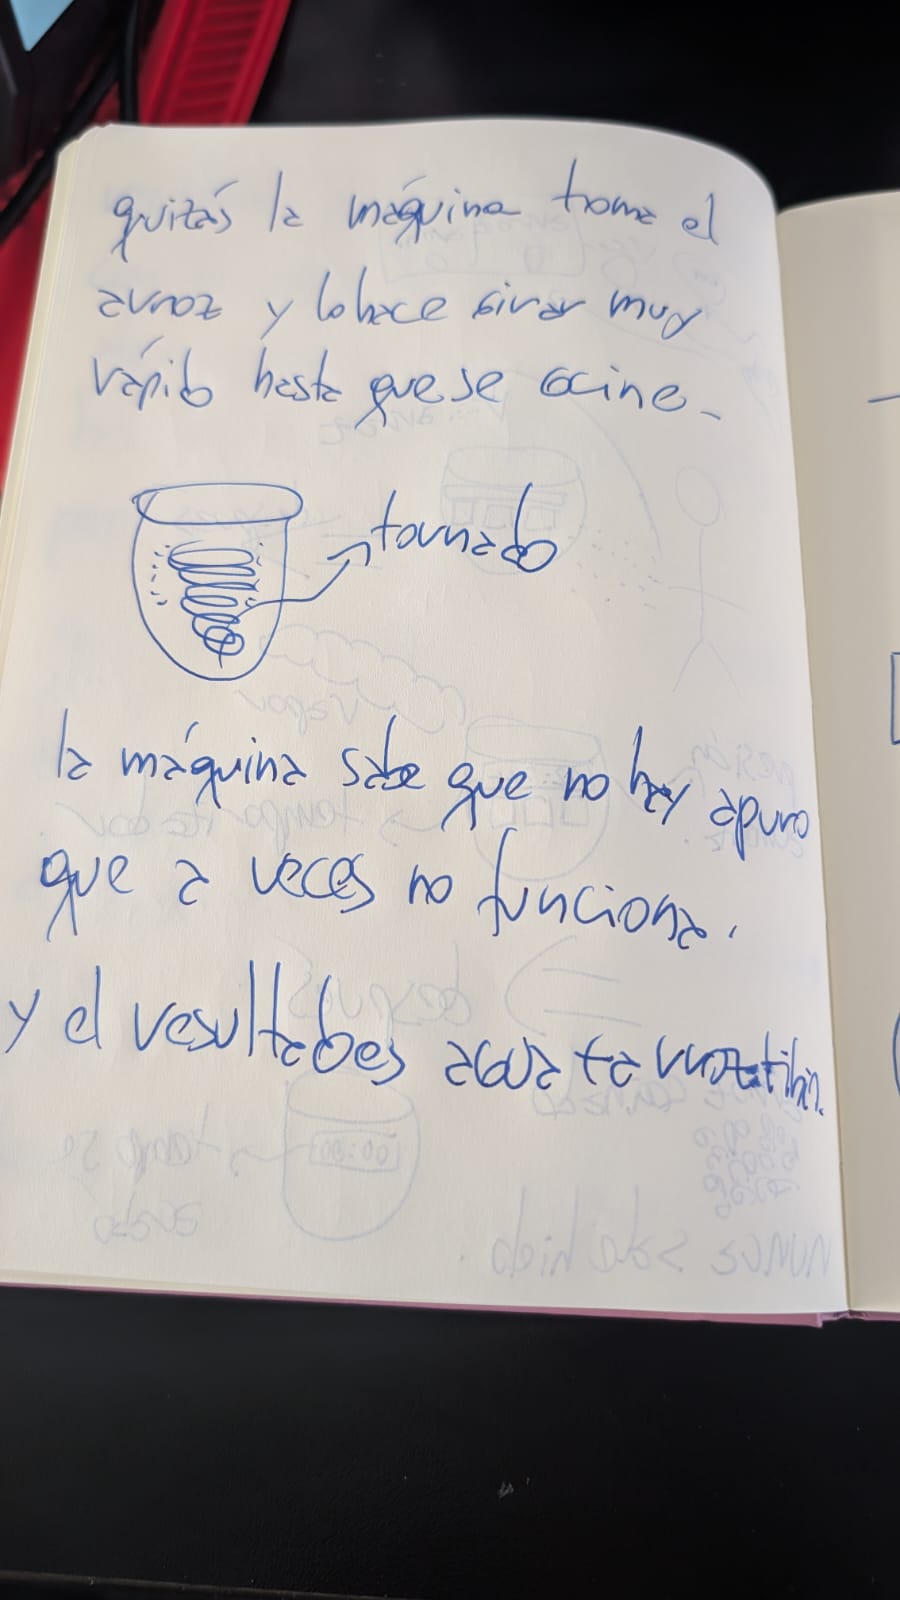 quizás la máquina troma el
arroz y lo hace girar muy
rápido hasta que se cocine.
tornado
la máquina sabe que no hay apuro
que a veces no funciona.
y el resultado es